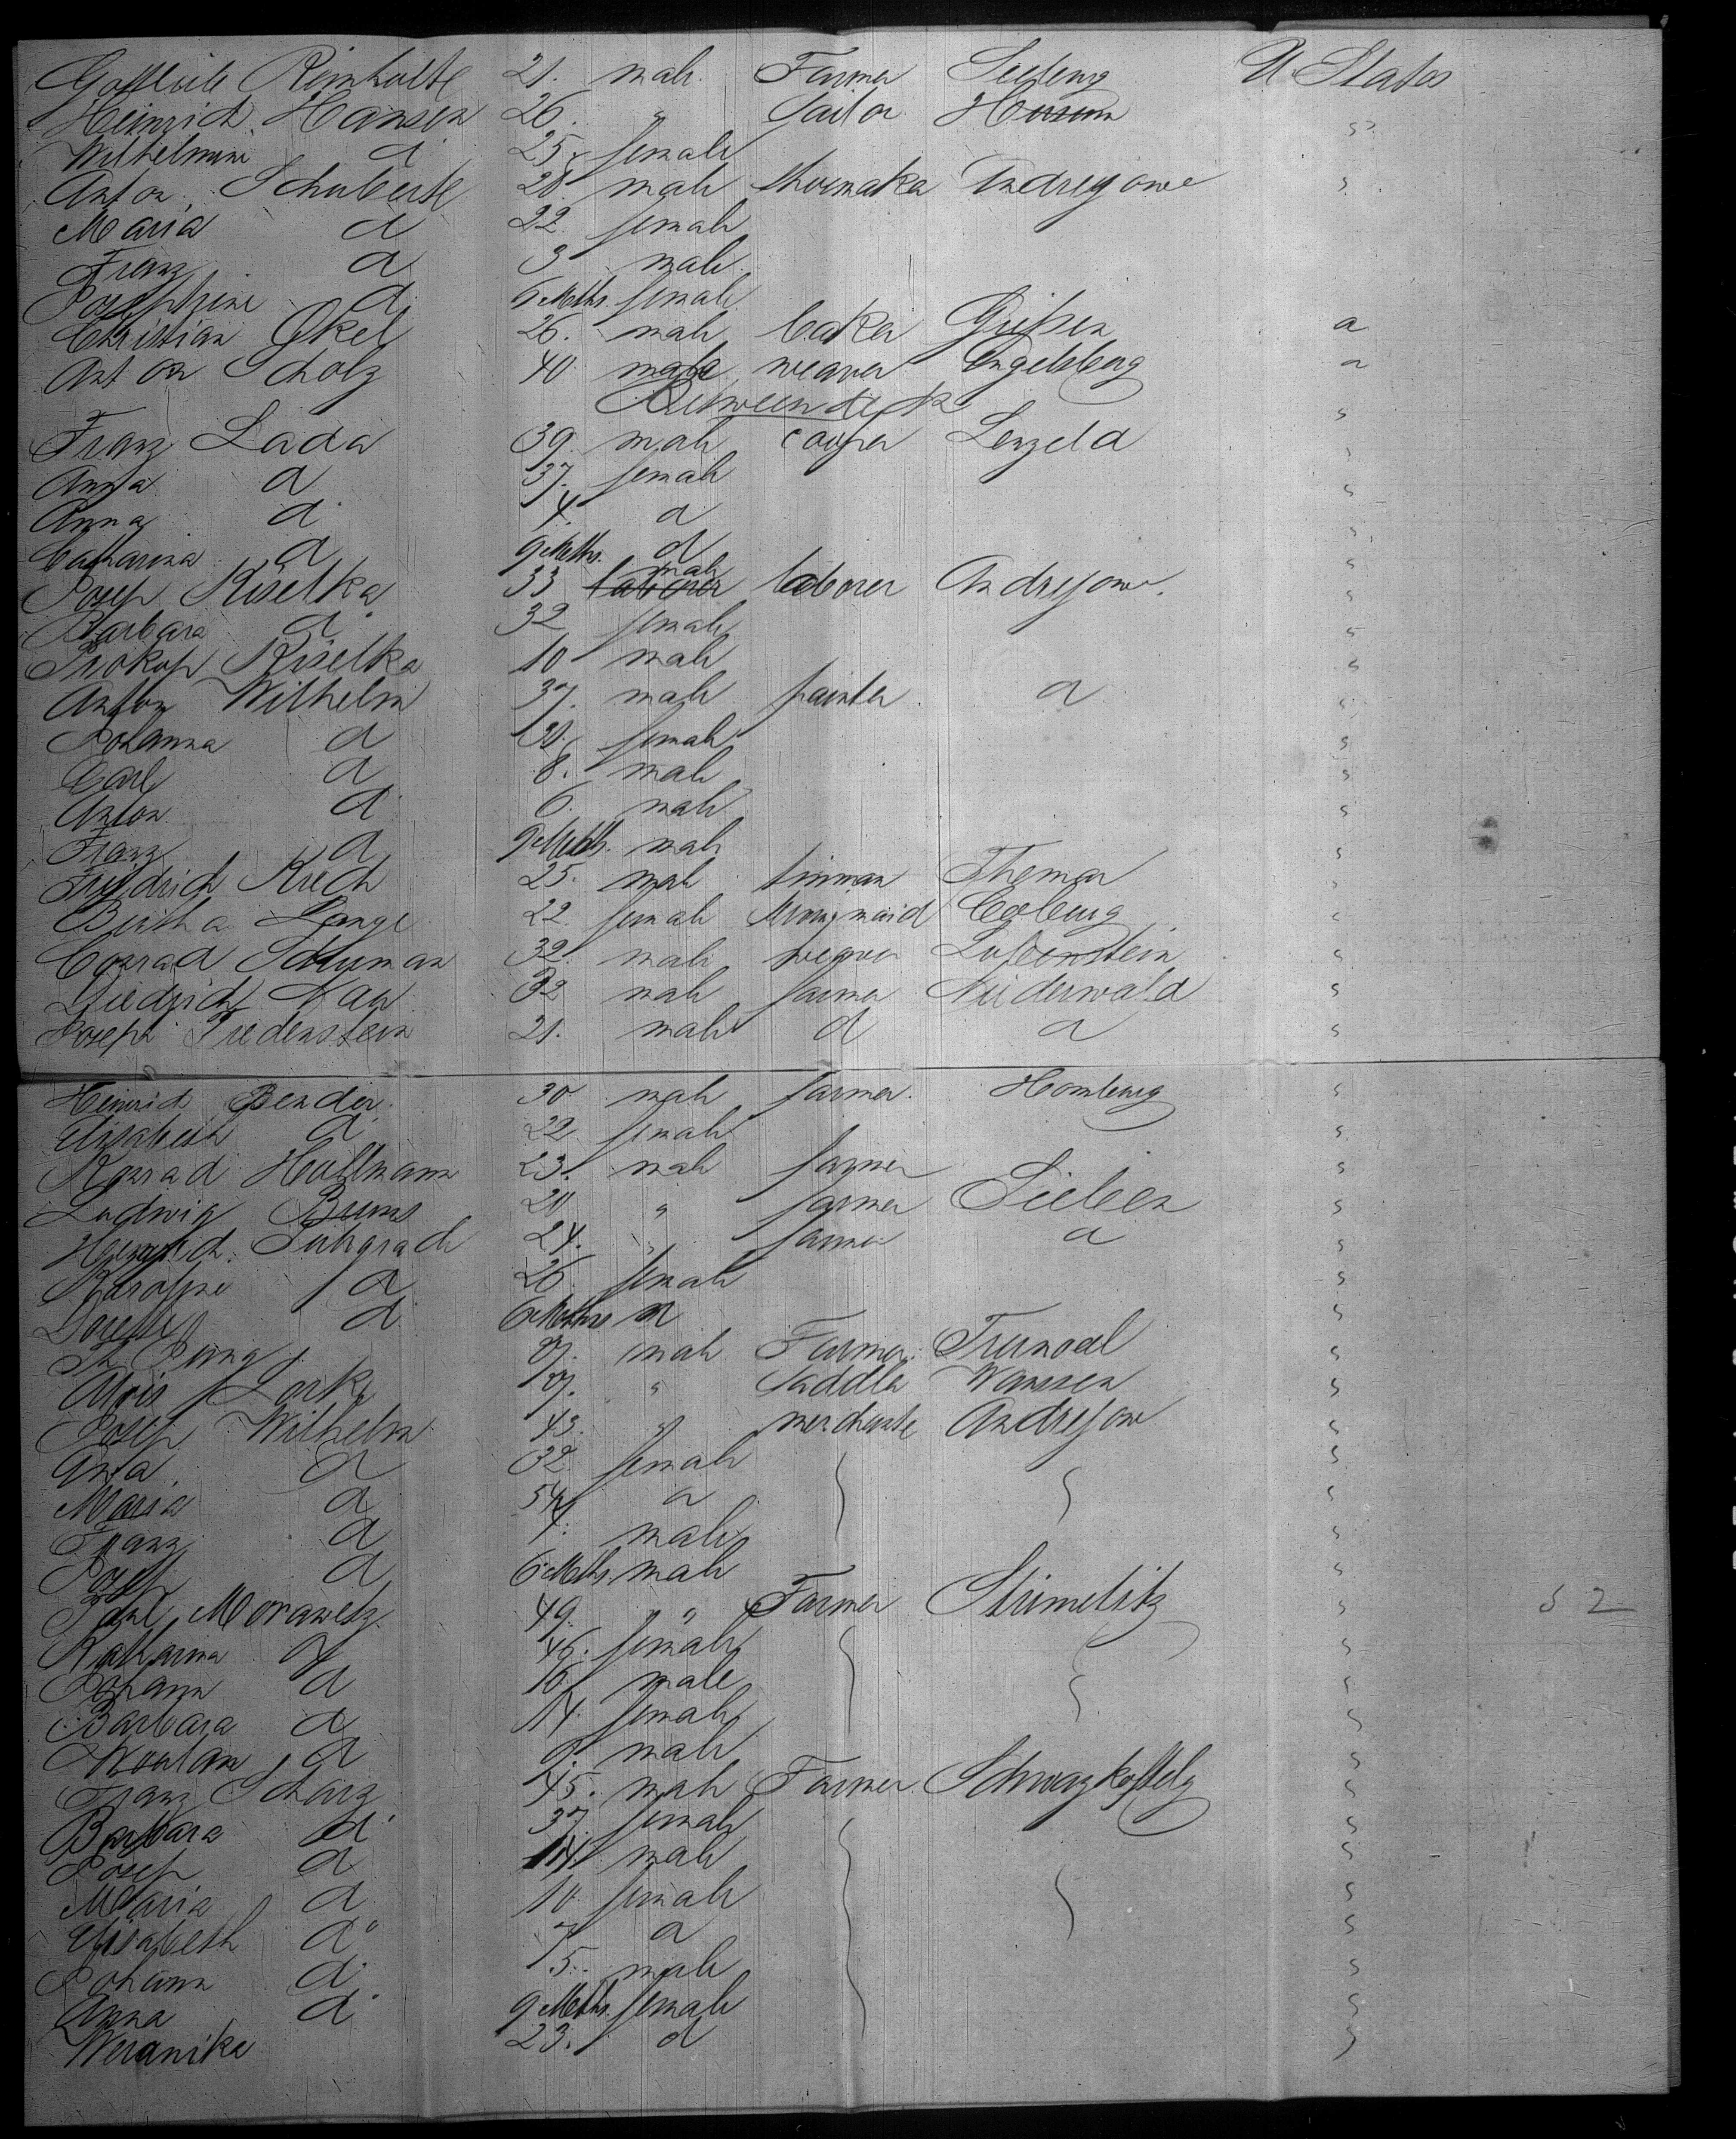 Gottlieb Reinholte 21. male Farmer Seeberg U. States
Heinrich Hansen 26. " Tailor Husum s
Wilhelmine d 25. female
Anton Schuberte 28 male shoemaker Andrejowe s
Maria d 22. female
Franz d 3 male
Josephine d. 6 Mths. female
Christian Okel 26. male baker Grißen a
Anton Scholz 40. male weaver Engelsberg a
Betweendeck s
Franz Lada 39. male cooper Lenzela s
Anna d 37. female s
Anna d 4. d s
Catharina d 9 Mths. d s
Josep Kiselka 33 male laborer Andrejowe. s
Barbara d 32 female s
Prokop Kiselka 10 male s
Anton Wilhelm 37. male painter d s
Johanna d female s
Carl d 8. male s
Anton d 6. male s
Franz d 9 Mths. male s
Friedrich Krech 25. male tinman Themar s
Bertha Lange 22 female maid Coburg s
Conrad Schuman 32. male weaver s
Diedrich Nau 32 male farmer Niederwald s
Joseph Friedenstein 21. male d d s
Heinrich Bender. 30 male farmer. Homburg s
Elisabeth d 22 female s
Konrad Hollmann 23. male farmer s
Ludwig Bruns 20 " farmer Sieben s
Heinrich d 24. " farmer d s
Karoline d 26 female s
d 6 Mths s
Jung male Farmer. s
Alois Lorke " Saddler Wanssen s
Josep Wilhelm 43. " merchante Andrejow s
Anna d 32 female s
Maria d d s
Franz d male s
Josep d 6 Mths. male s
Paul Morawetz 49. " Farmer Strimelitz s 52
Katharina d 46. female s
Johann d 16 male s
Barbara d 14. female s
d 9. male s
Franz Scharz 45. male Farmer Schwarzkostely s
Barbara d 37. female s
Josep d 14. male s
Maria d 10 female s
Elisabeth d 7 d s
Johann d 5. male s
Anna d 9 Mths. female s
Weranika 23. d s